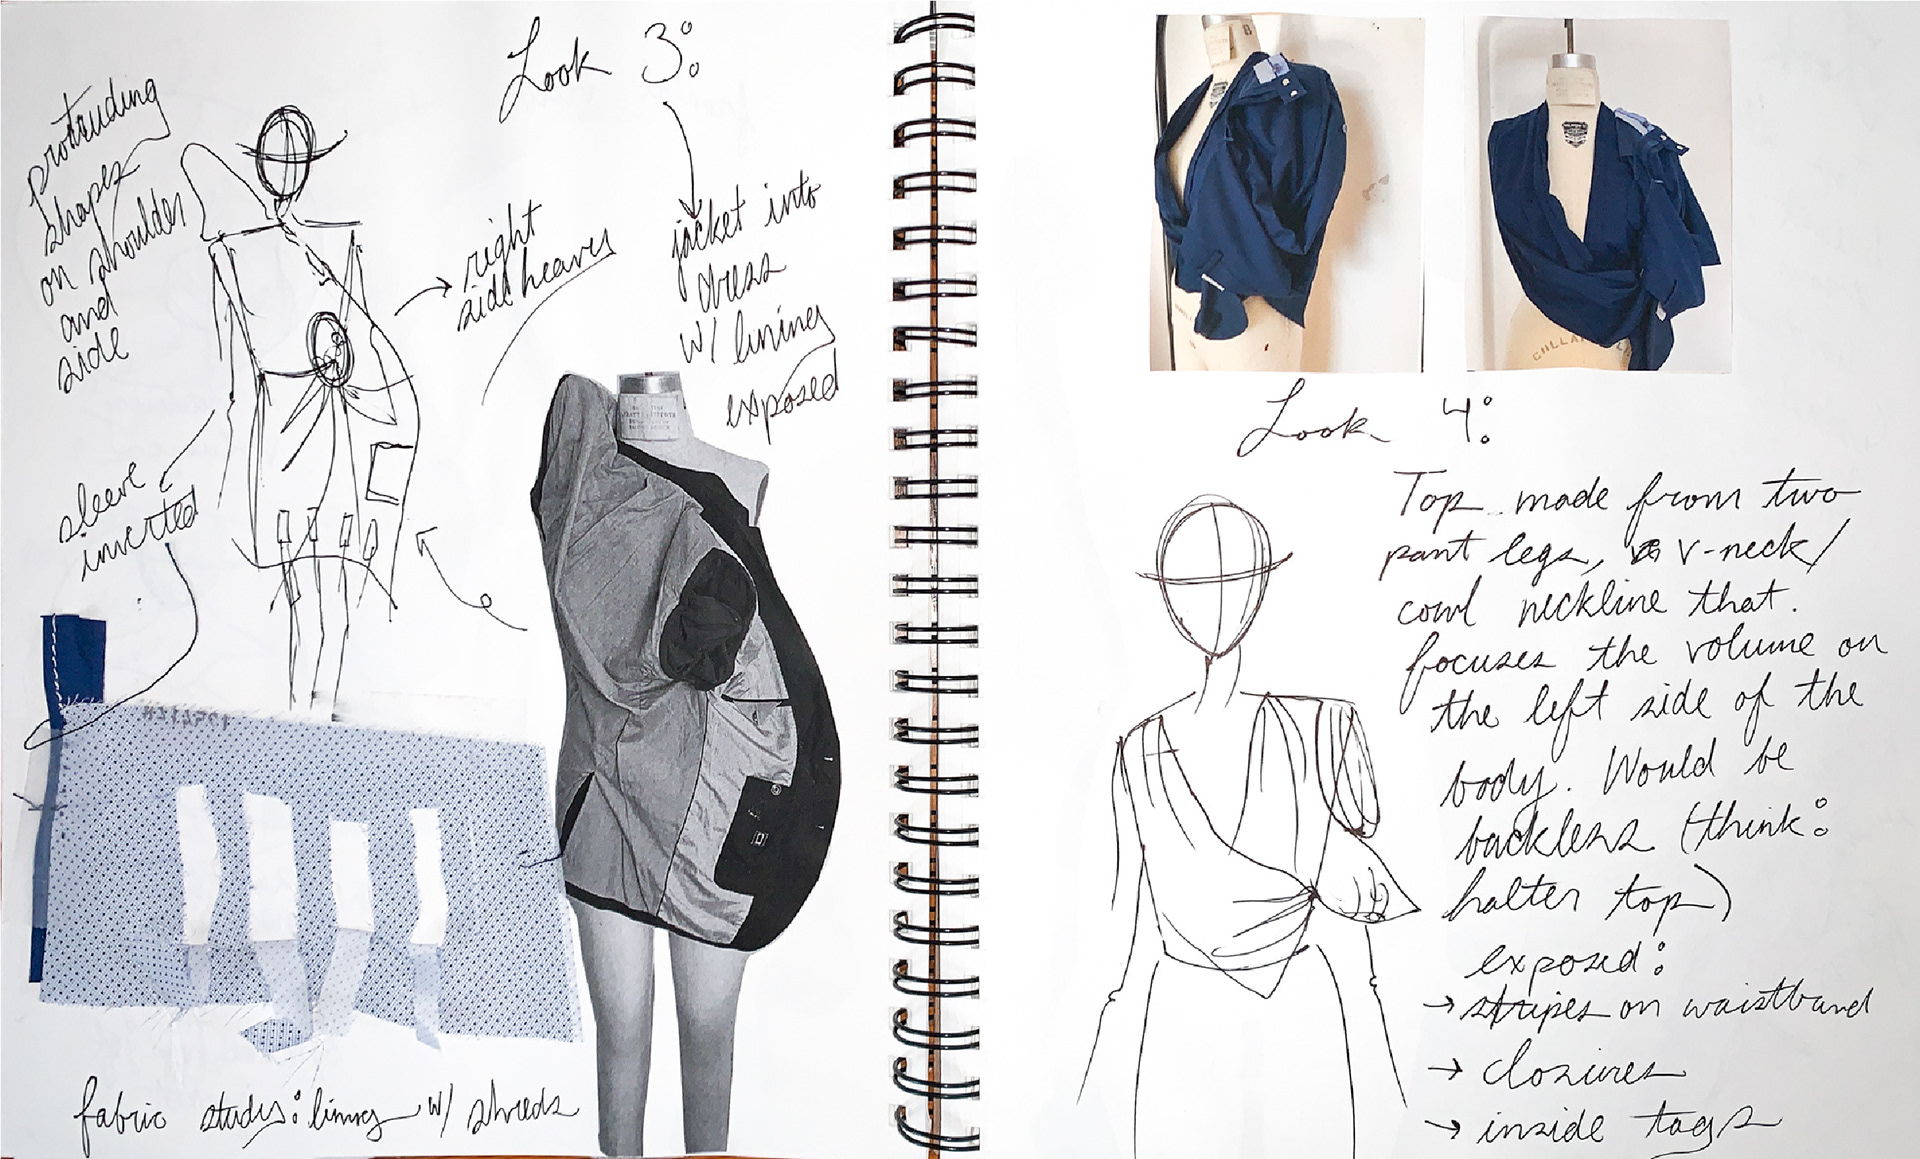 Look 3:
protruding
shapes
on shoulder
and
side
right
side heavy
jacket into
dress
w/ lining
exposed
sleeve
inverted
fabric study: lining w/ shreds
Look 4:
Top made from two
pant legs, v-neck/
cowl neckline that
focuses the volume on
the left side of the
body. Would be
backless (think:
halter top)
exposed:
→ stripes on waistband
→ closures
→ inside tags